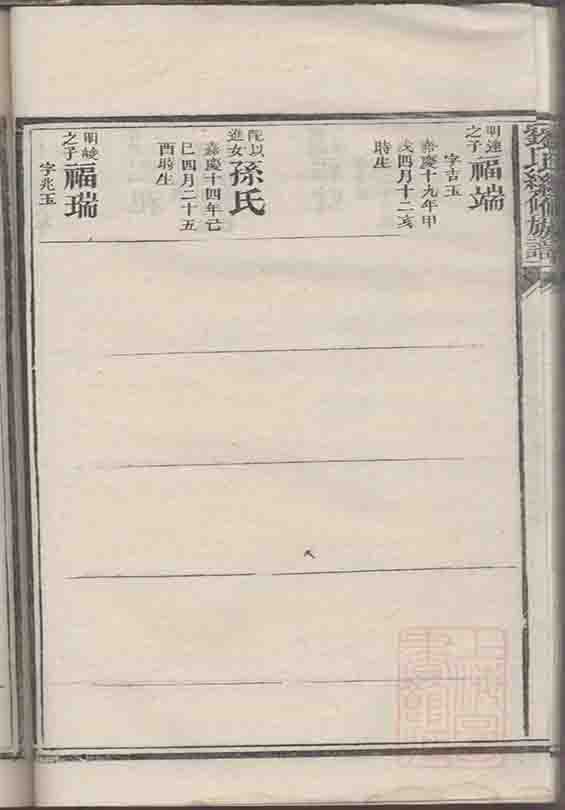 劉氏續修族譜
明達
之子
福端
字吉玉
嘉慶十九年甲
戌四月十二亥
時生
配以
進女
孫氏
嘉慶十四年己
巳四月二十五
酉時生
之子
福瑞
字兆玉